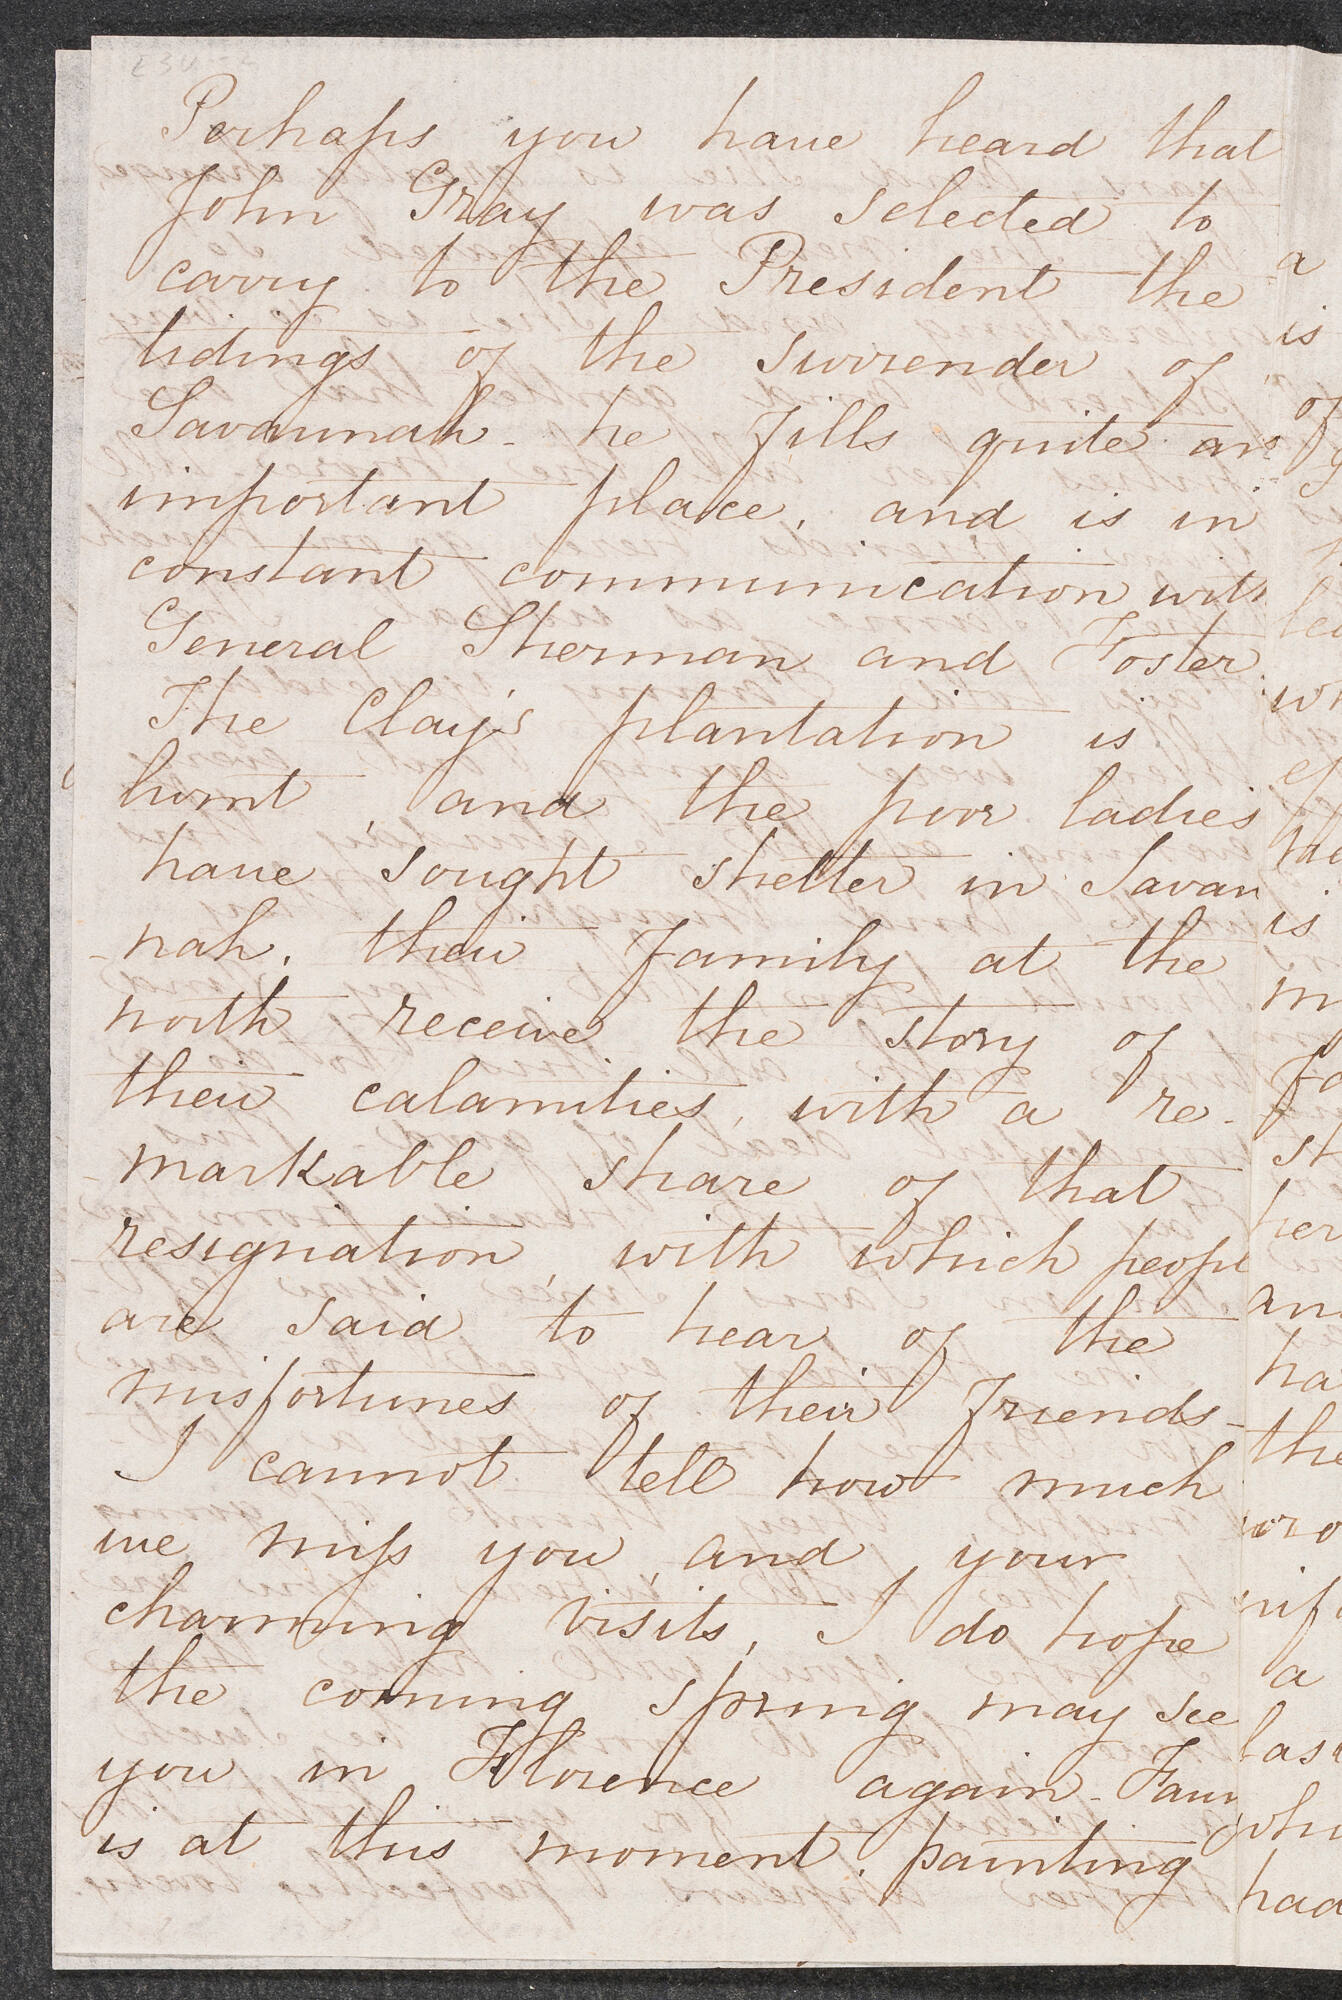 Perhaps you have heard that
John Gray was selected to
carry to the President the
tidings of the surrender of
Savannah - he fills quite an
important place, and is in
constant communication with
General Sherman and Foster.
The Clay's plantation is
burnt, and the poor ladies
have sought shelter in Savan
-nah. their family at the
north receive the story of
their calamities, with a re-
markable share of that
resignation, with which peopl
are said to hear of the
misfortunes of their friends -
I cannot tell how much
we miss you, and your
charming visits, I do hope
the coming spring may see
you in Florence again - Fann
is at this moment painting
a
is
of
wh
is
st
her
and
ha
the
a
las
whi
had